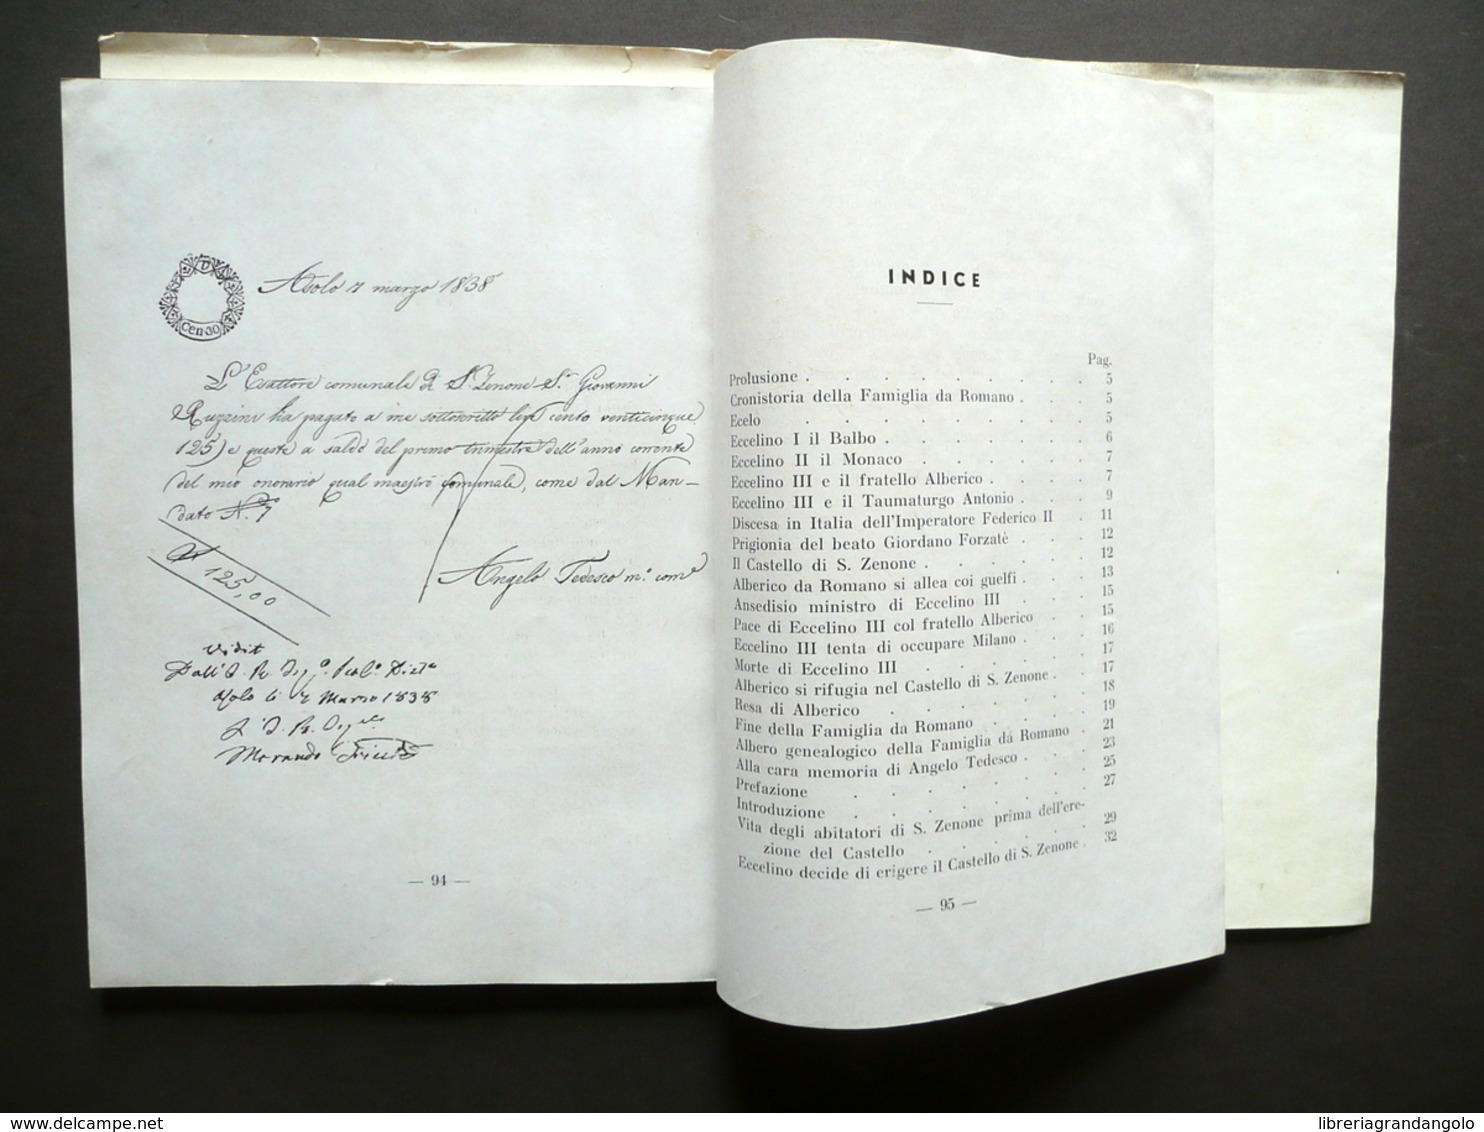 Asolo 7 marzo 1838
Cen 30
L'Esattore comunale di S. Zenone Sr. Giovanni
Ruzzini ha pagato a me sottoscritto lire cento venticinque
125) e queste a saldo del primo trimestre dell'anno corrente
del mio onorario qual maestro comunale, come dal Man-
dato N.° 7
125,00
Angelo Tedesco m.° com.e
Vidit
Dall'I. R.
Asolo li 7 Marzo 1838
L'I. R.
Morando
— 94 —
INDICE
Pag.
Prolusione . . . . . . . . . 5
Cronistoria della Famiglia da Romano . . . 5
Ecelo . . . . . . . . . 5
Eccelino I il Balbo . . . . . . . 6
Eccelino II il Monaco . . . . . . 7
Eccelino III e il fratello Alberico . . . . 7
Eccelino III e il Taumaturgo Antonio . . . 9
Discesa in Italia dell'Imperatore Federico II . 11
Prigionia del beato Giordano Forzatè . . . 12
Il Castello di S. Zenone . . . . . . 12
Alberico da Romano si allea coi guelfi . . . 13
Ansedisio ministro di Eccelino III . . . 15
Pace di Eccelino III col fratello Alberico . . 15
Eccelino III tenta di occupare Milano . . . 16
Morte di Eccelino III . . . . . . 17
Alberico si rifugia nel Castello di S. Zenone . . 17
Resa di Alberico . . . . . . . 18
Fine della Famiglia da Romano . . . . 19
Albero genealogico della Famiglia da Romano . 21
Alla cara memoria di Angelo Tedesco . . . 23
Prefazione . . . . . . . . 25
Introduzione . . . . . . . . 27
Vita degli abitatori di S. Zenone prima dell'ere-
zione del Castello . . . . . . 29
Eccelino decide di erigere il Castello di S. Zenone . 32
— 95 —
delcampe.net
libreriagrandangolo